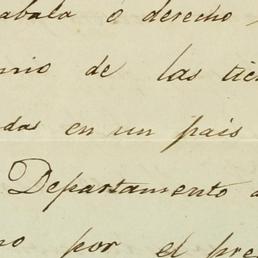 abala ó derecho
nio de las tie
das en un país
Departamento
no por el pre